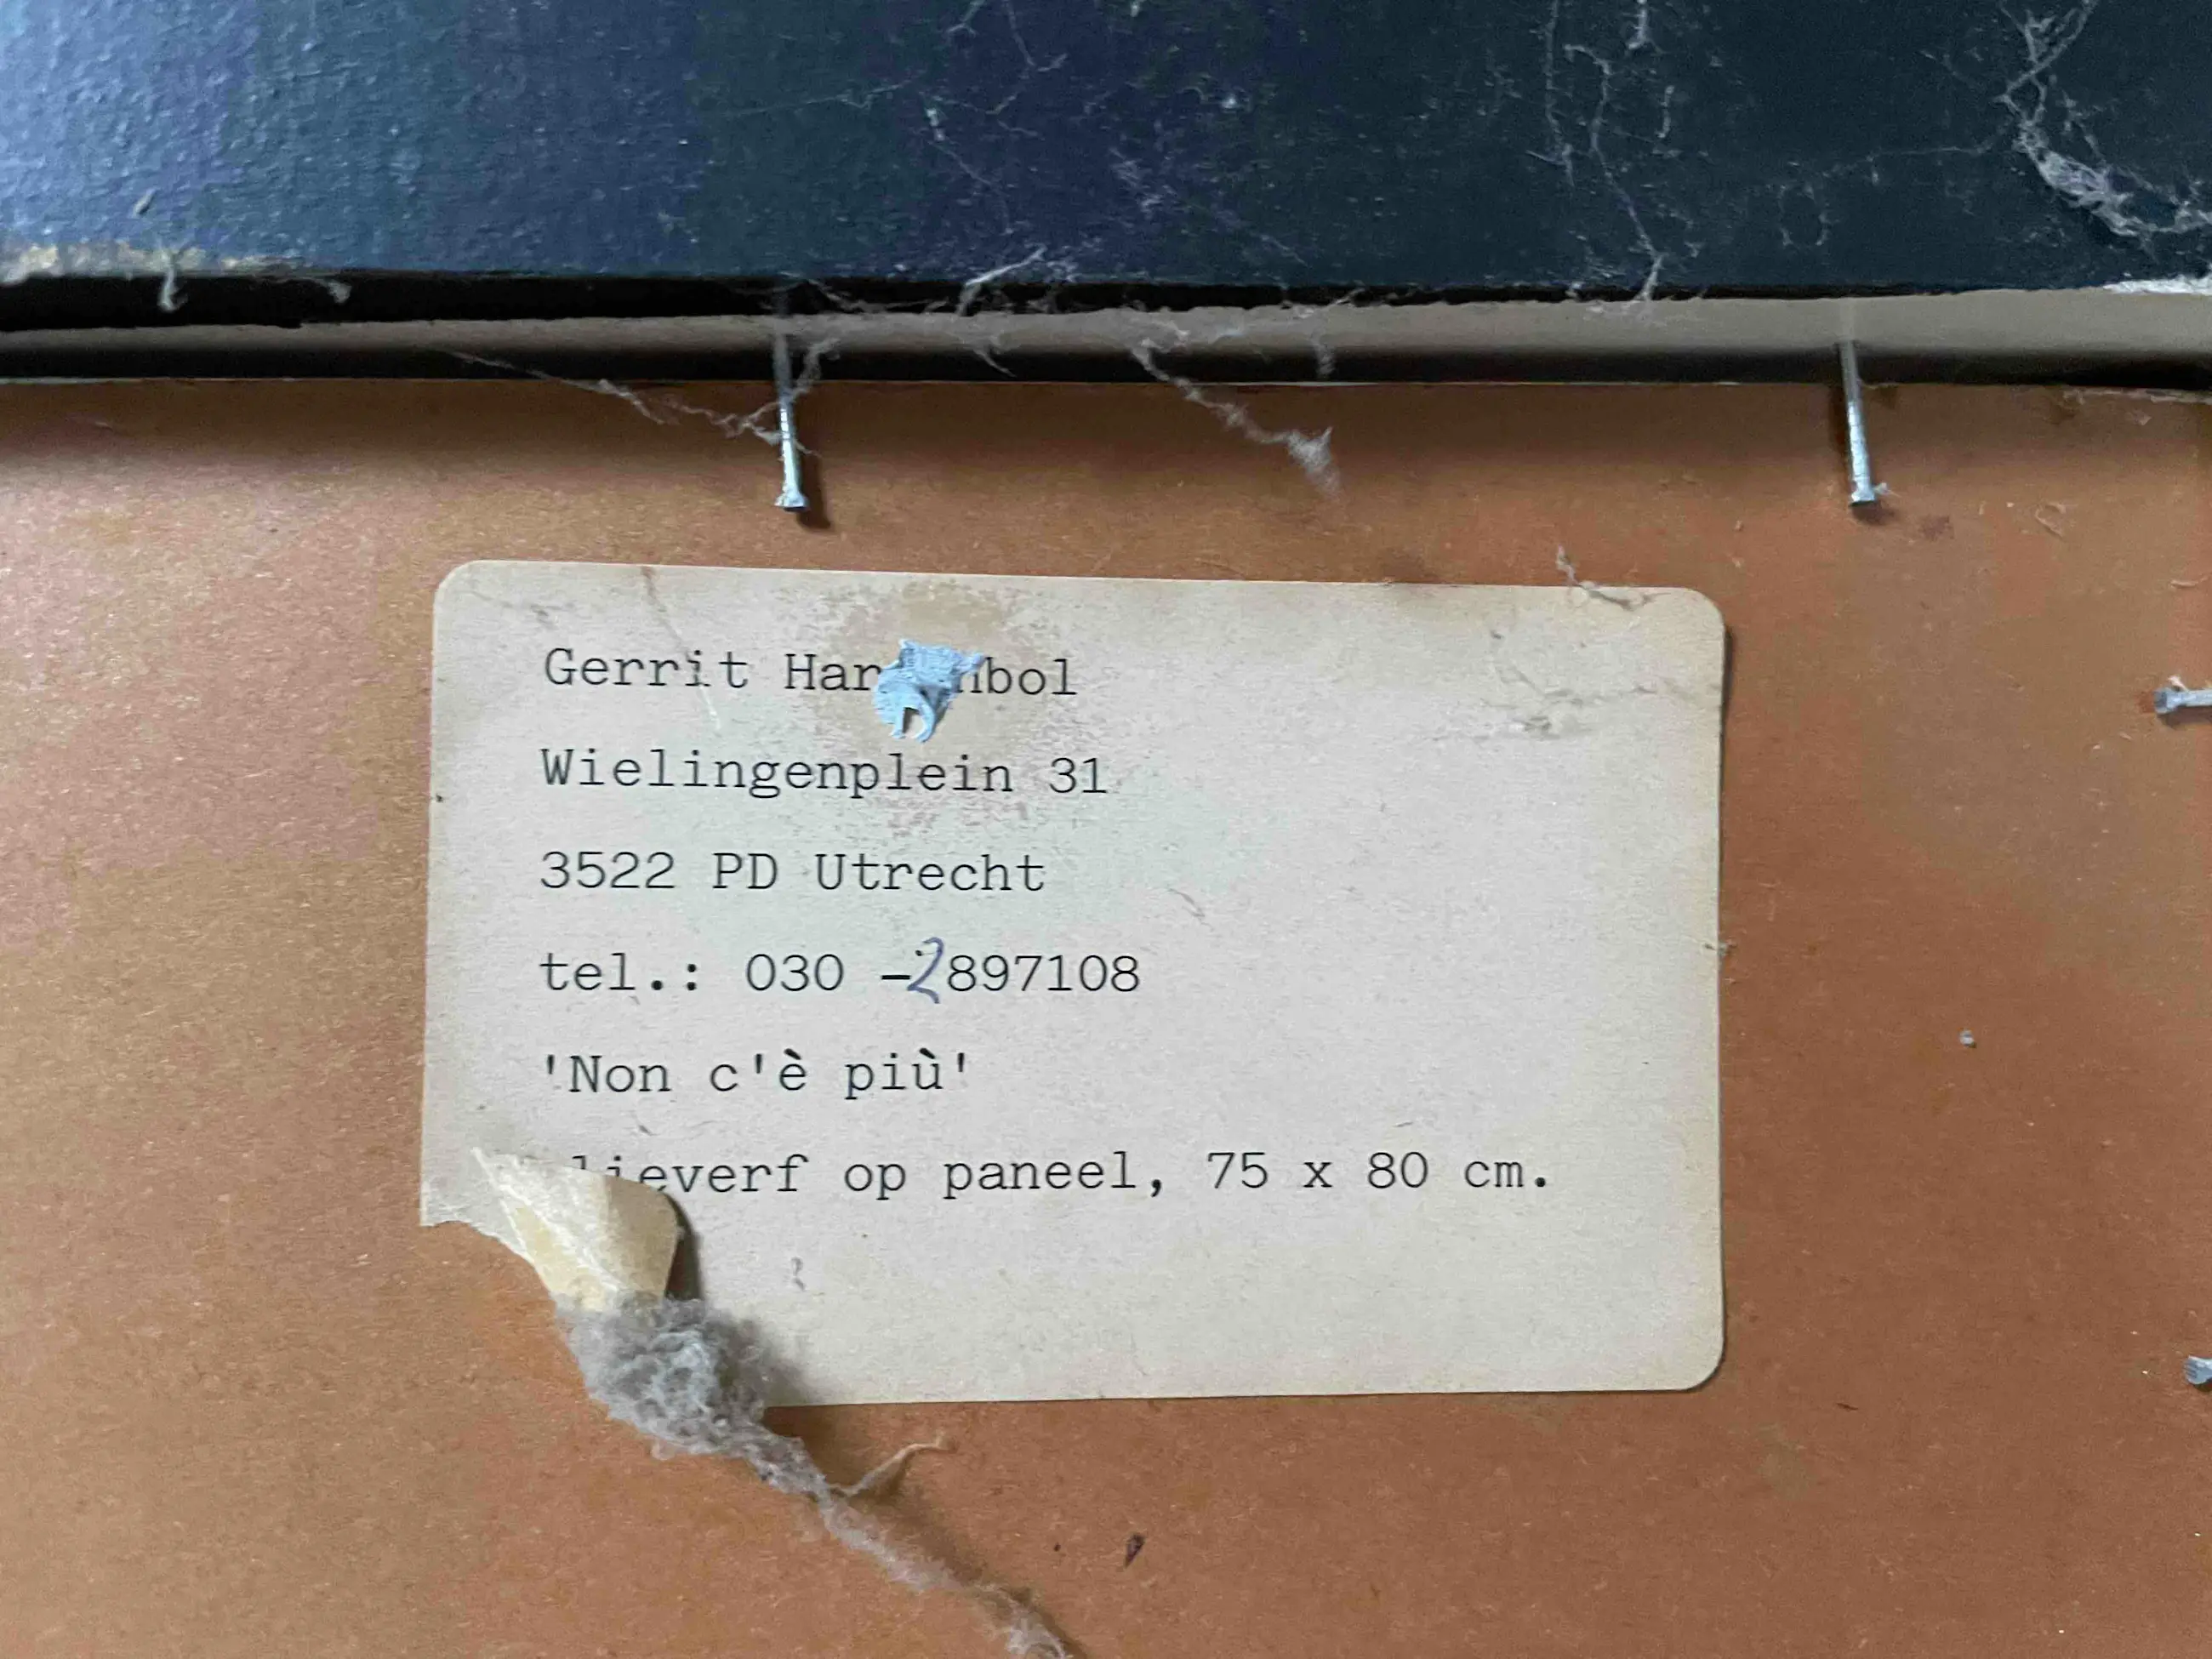 Gerrit
Wielingenplein 31
3522 PD Utrecht
tel.: 030 -2897108
'Non c'è più'
op paneel, 75 x 80 cm.